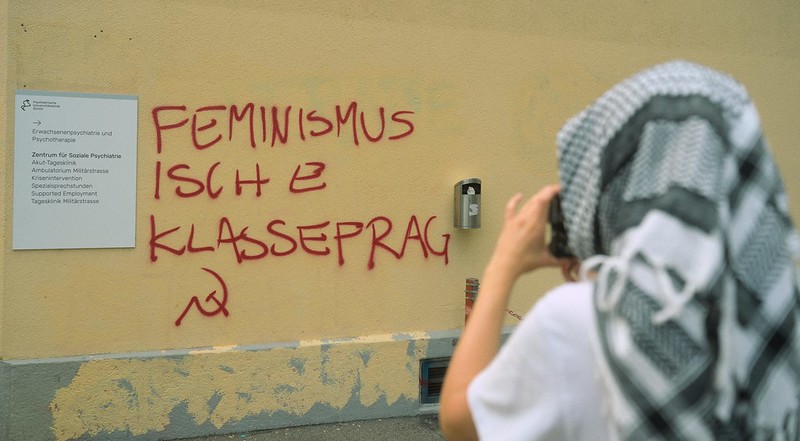 Psychiatrische
Universitätsklinik
Zürich
→
Erwachsenenpsychiatrie und
Psychotherapie
Zentrum für Soziale Psychiatrie
Akut-Tagesklinik
Ambulatorium Militärstrasse
Krisenintervention
Spezialsprechstunden
Supported Employment
Tagesklinik Militärstrasse
FEMINISMUS
ISCH E
KLASSEFRAG